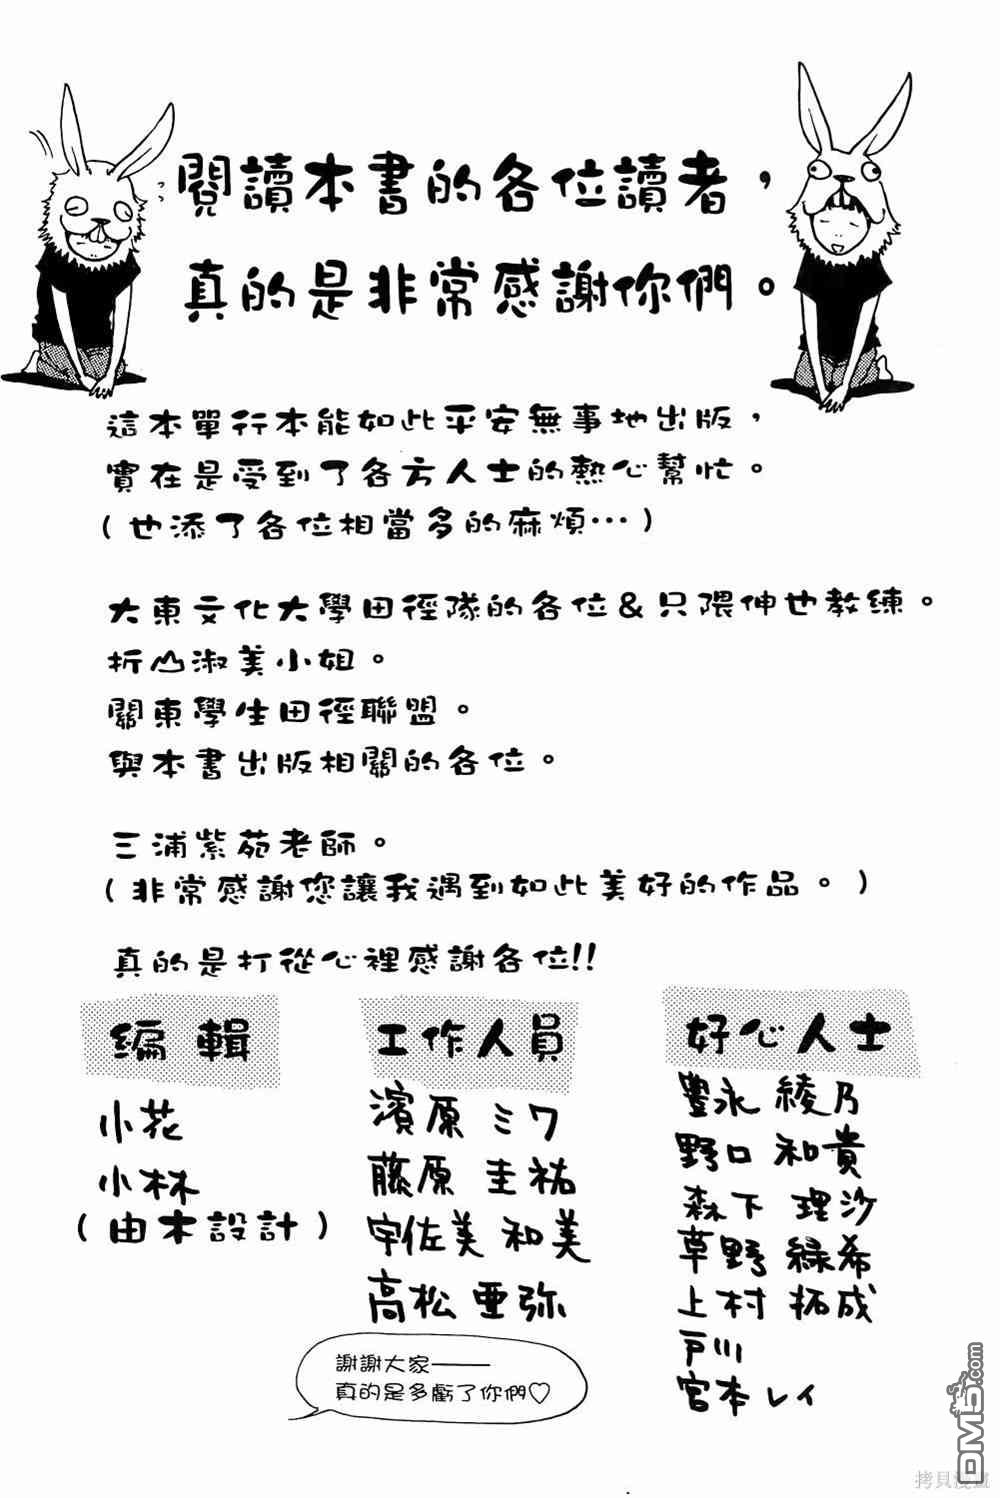 閱讀本書的各位讀者，
真的是非常感謝你們。
這本單行本能如此平安無事地出版，
實在是受到了各方人士的熱心幫忙。
(也添了各位相當多的麻煩…)
大東文化大學田徑隊的各位&只隈伸也教練。
折山淑美小姐。
關東學生田徑聯盟。
與本書出版相關的各位。
三浦紫苑老師。
(非常感謝您讓我遇到如此美好的作品。)
真的是打從心裡感謝各位!!
編輯
小花
小林
(由木設計)
工作人員
濱原 ミワ
藤原 圭祐
宇佐美 和美
高松 亜弥
好心人士
豊永 綾乃
野口 和貴
森下 理沙
草野 緑希
上村 拓成
戸川
宮本レイ
謝謝大家——
真的是多虧了你們♡
DM5.com
拷貝漫畫